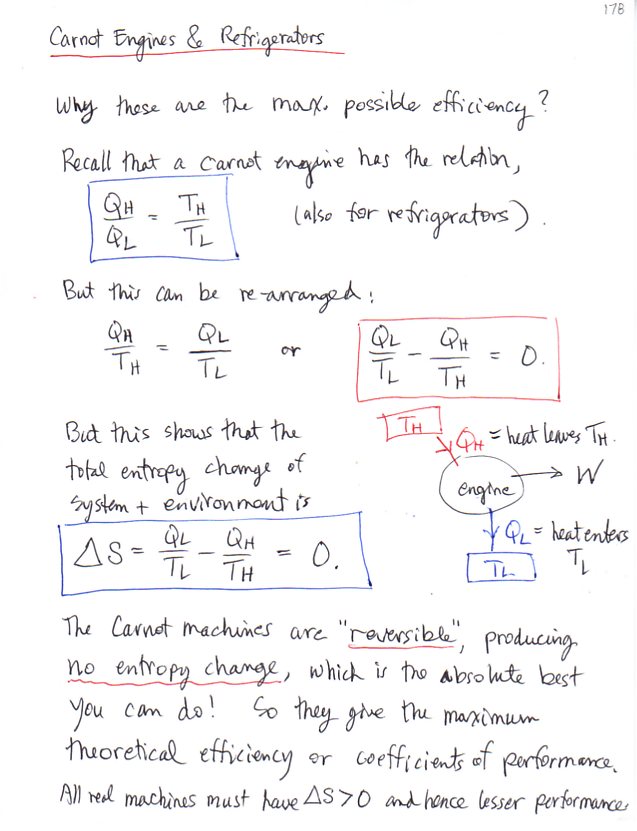 178
Carnot Engines & Refrigerators
Why these are the max. possible efficiency?
Recall that a Carnot engine has the relation,
Q_H/Q_L = T_H/T_L (also for refrigerators).
But this can be re-arranged:
Q_H/T_H = Q_L/T_L or Q_L/T_L - Q_H/T_H = 0.
But this shows that the
total entropy change of
system + environment is
ΔS = Q_L/T_L - Q_H/T_H = 0.
T_H
Q_H = heat leaves T_H.
engine → W
Q_L = heat enters
T_L
T_L
The Carnot machines are "reversible", producing
no entropy change, which is the absolute best
you can do! So they give the maximum
theoretical efficiency or coefficients of performance.
All real machines must have ΔS>0 and hence lesser performance